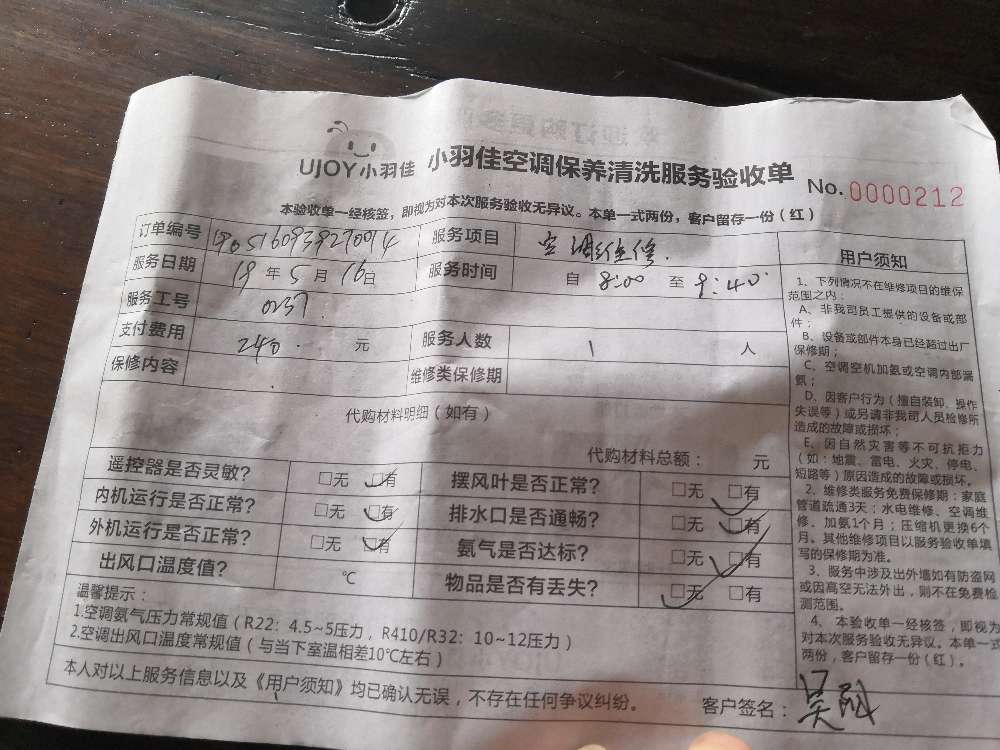 UJOY小羽佳 小羽佳空调保养清洗服务验收单 No.0000212
本验收单一经核签，即视为对本次服务验收无异议。本单一式两份，客户留存一份（红）
订单编号 服务项目 空调维修
服务日期 19年5月16日 服务时间 自 8:00 至 9:40
服务工号 0237
支付费用 240 元 服务人数 1 人
保修内容 维修类保修期
代购材料明细（如有）
代购材料总额： 元
遥控器是否灵敏？ □无 □有 摆风叶是否正常？ □无 □有
内机运行是否正常？ □无 □有 排水口是否通畅？ □无 □有
外机运行是否正常？ □无 □有 氨气是否达标？ □无 □有
出风口温度值？ ℃ 物品是否有丢失？ □无 □有
温馨提示：
1.空调氨气压力常规值（R22：4.5~5压力，R410/R32：10~12压力）
2.空调出风口温度常规值（与当下室温相差10℃左右）
本人对以上服务信息以及《用户须知》均已确认无误，不存在任何争议纠纷。 客户签名：
用户须知
1、下列情况不在维修项目的维保
范围之内：
A、非我司员工提供的设备或部
件；
B、设备或部件本身已经超过出厂
保修期；
C、空调空机加氨或空调内部漏
氨；
D、因客户行为（擅自装卸、操作
失误等）或另请非我司人员检修所
造成的故障或损坏；
E、因自然灾害等不可抗拒力
（如：地震、雷电、火灾、停电、
短路等）原因造成的故障或损坏。
2、维修类服务免费保修期：家庭
管道疏通3天；水电维修、空调维
修、加氨1个月；压缩机更换6个
月。其他维修项目以服务验收单填
写的保修期为准。
3、服务中涉及出外墙如有防盗网
或因高空无法外出，则不在免费检
测范围。
4、本验收单一经核签，即视为
对本次服务验收无异议。本单一式
两份，客户留存一份（红）。